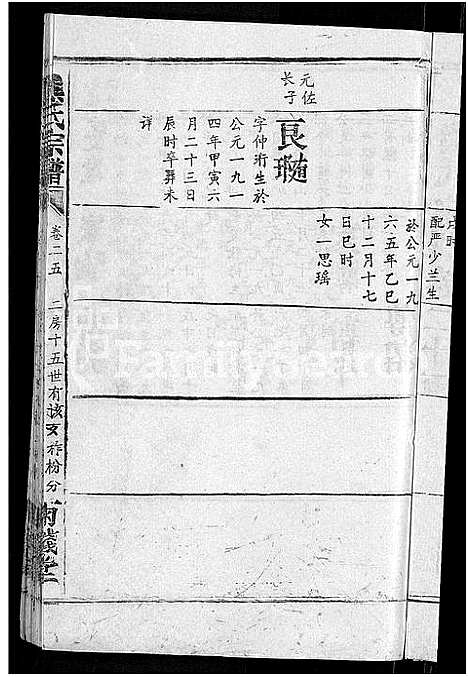 戌时
配严少兰生
於公元一九
六五年乙巳
十二月十七
日巳时
女一思瑶
元佐
长子
良瓍
字仲珩生於
公元一九一
四年甲寅六
月二十三日
辰时卒葬未
详
氏宗谱
卷二五
二房十五世有该支祚份分
FamilySearch